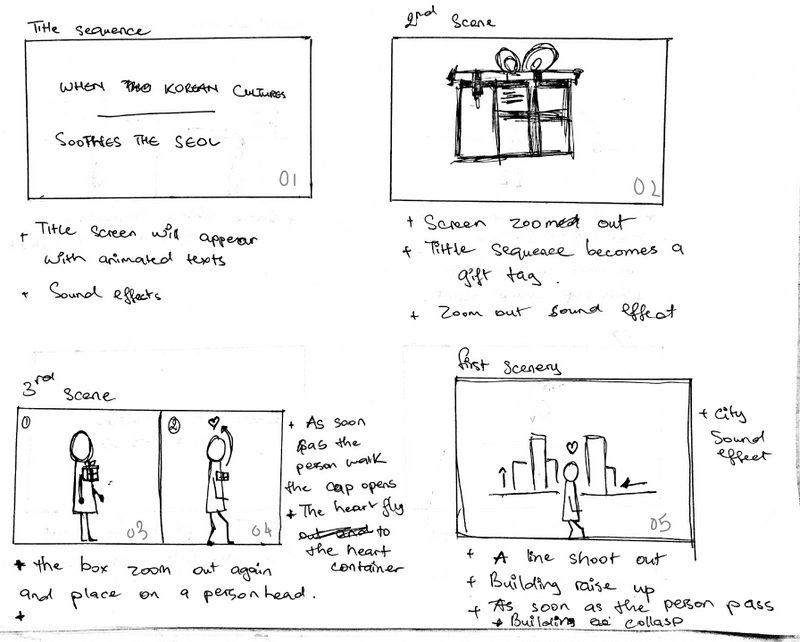 Title sequence
WHEN THO KOREAN CULTURES
SOOTHIES THE SEOL
01
+ Title screen will apperar
with animated texts
+ Sound effects
2nd Scene
02
+ Screen zoomed out
+ Tittle sequence becomes a
gift tag.
+ Zoom out sound effect
3rd Scene
①
03
②
04
+ As soon
as the
person walk
the cap opens
+ The heart fly
to
the heart
container
+ the box zoom out again
and place on a person head.
+
first scenery
05
+ City
Sound
effect
+ A line shoot out
+ Building raise up
+ As soon as the person pass
+ Building collasp